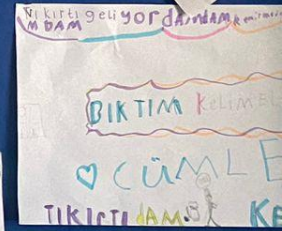 Tıkırtı geliyor damdam
MDAM
BIKTIM KELİMEL
CÜMLE
TIKIRTI DAM.
KE